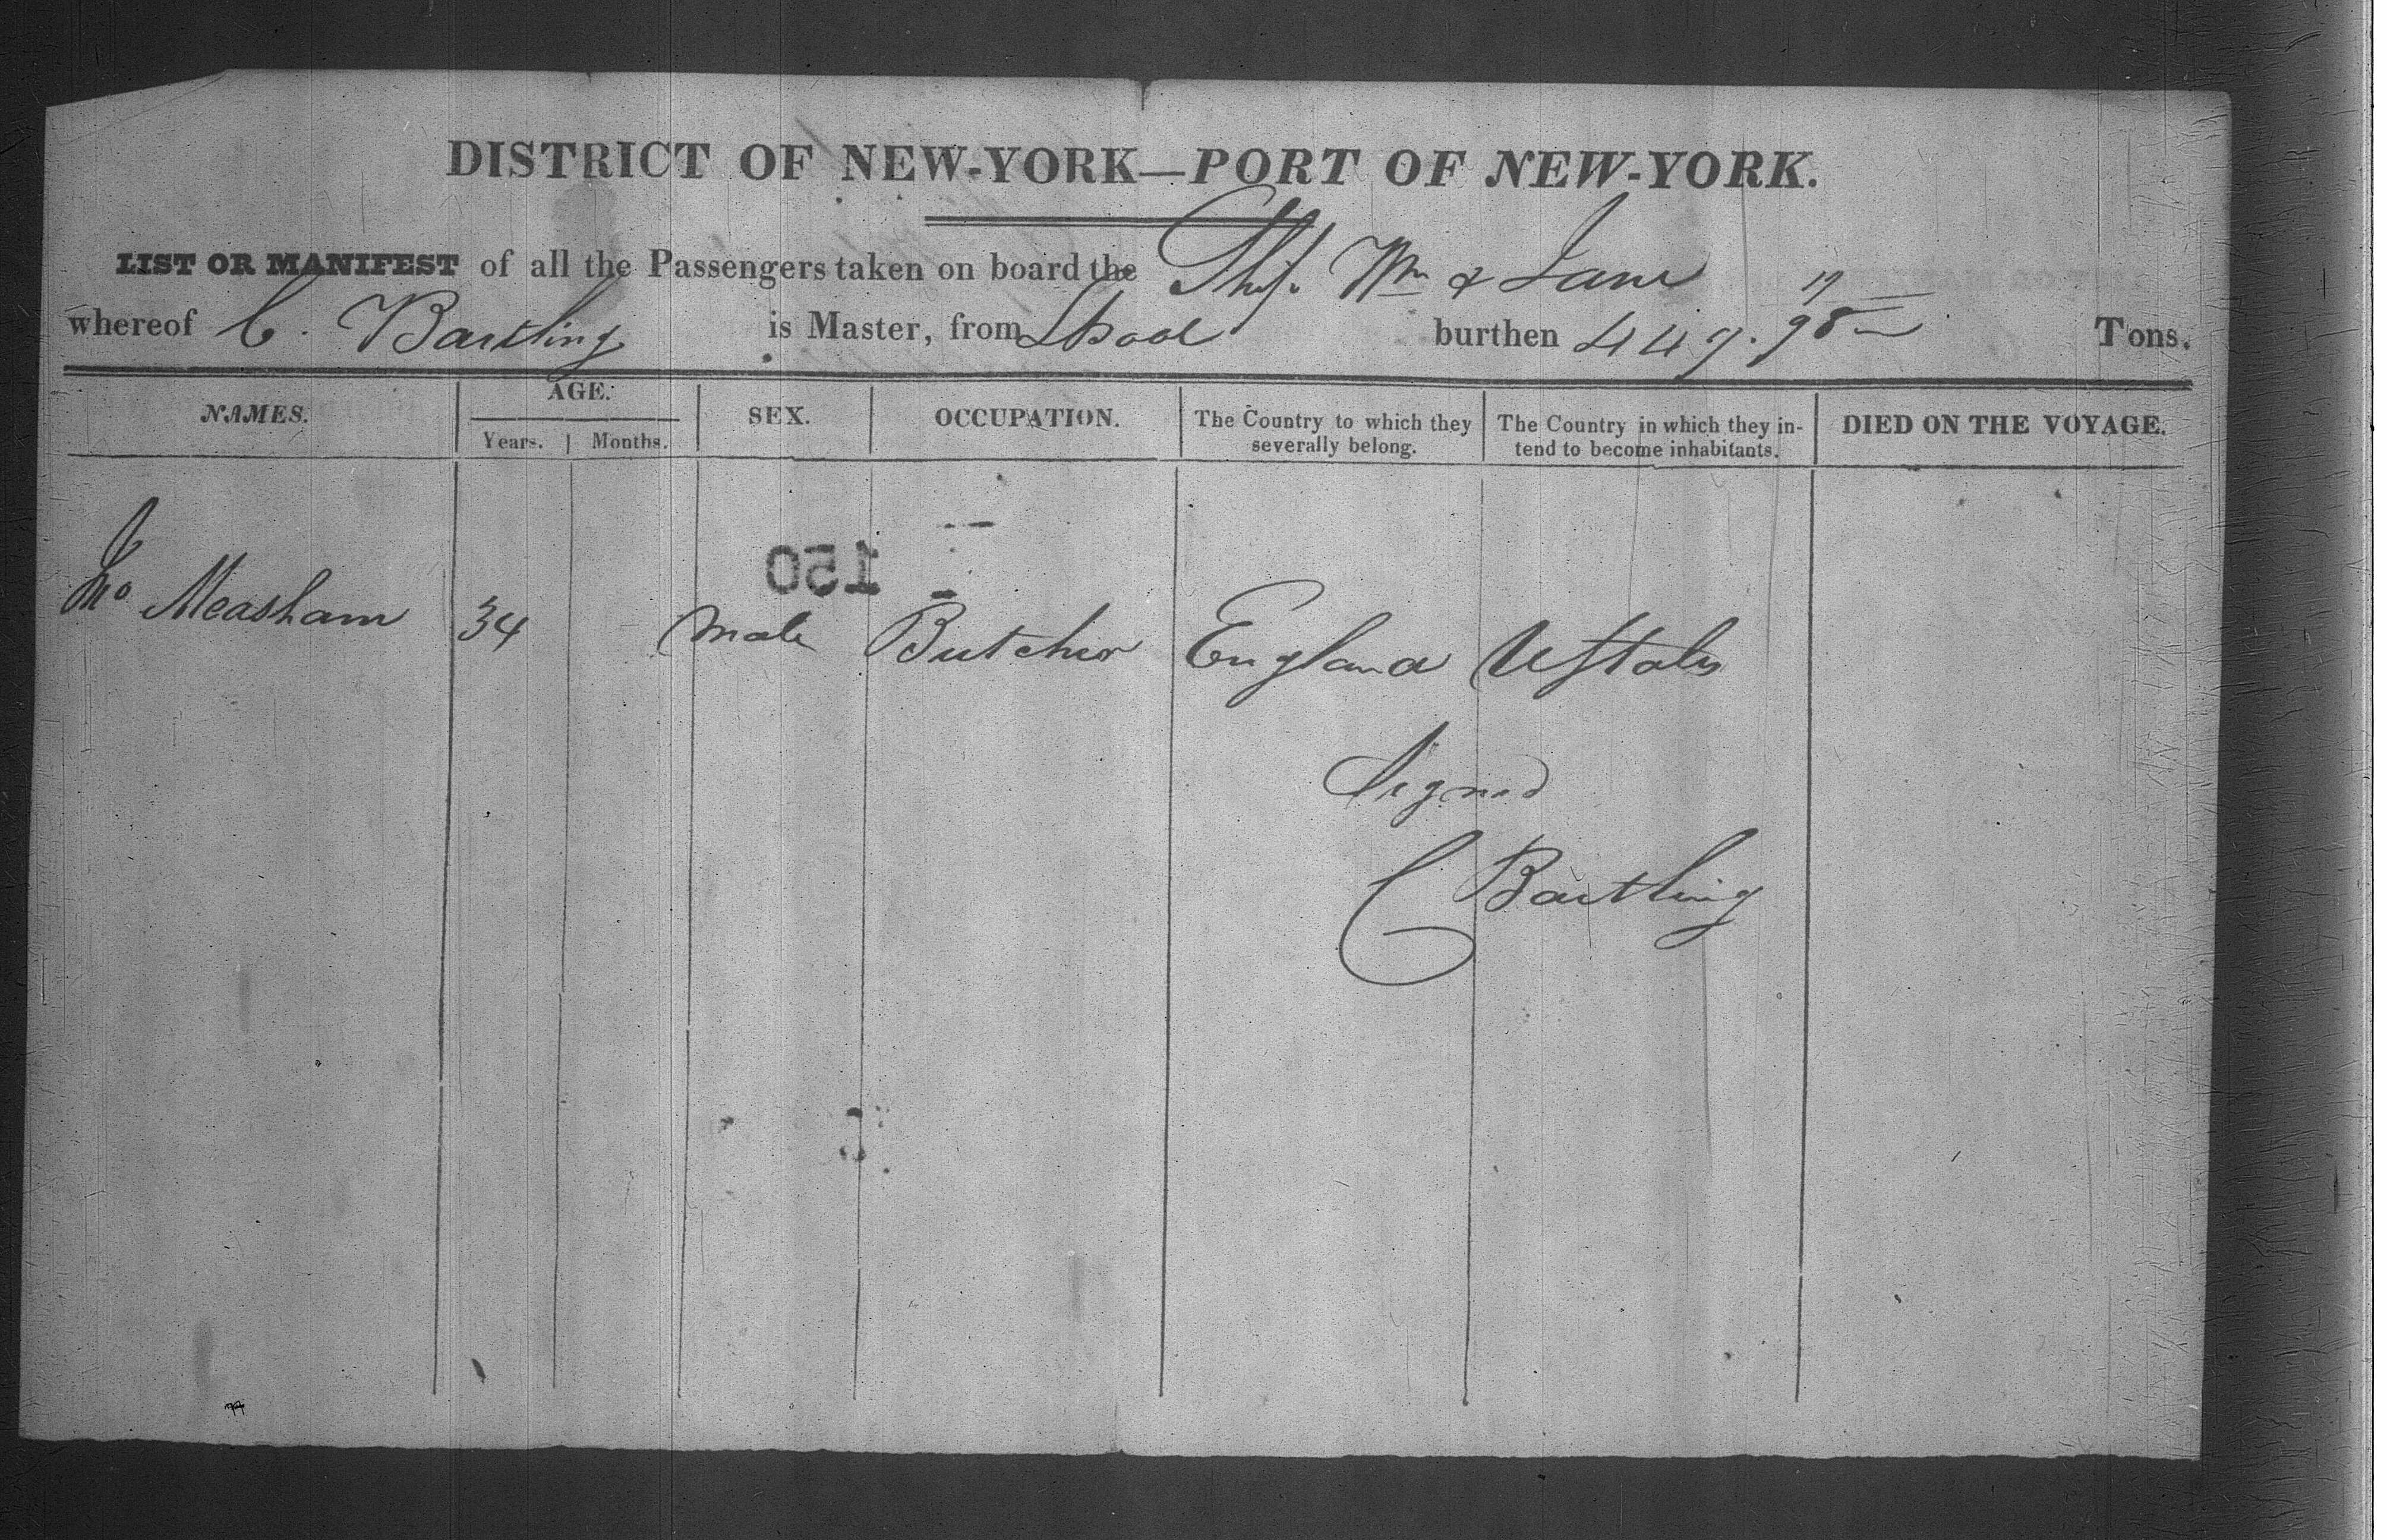 DISTRICT OF NEW-YORK—PORT OF NEW-YORK.
LIST OR MANIFEST of all the Passengers taken on board the Ship Wm & Jane
whereof C. Bartling is Master, from Lpool burthen 449. 19/95 Tons.
NAMES. AGE. SEX. OCCUPATION. The Country to which they severally belong. The Country in which they in- tend to become inhabitants. DIED ON THE VOYAGE.
Years. Months.
150
Jno Measham 34 Male Butcher England UStates
Signed
C Bartling